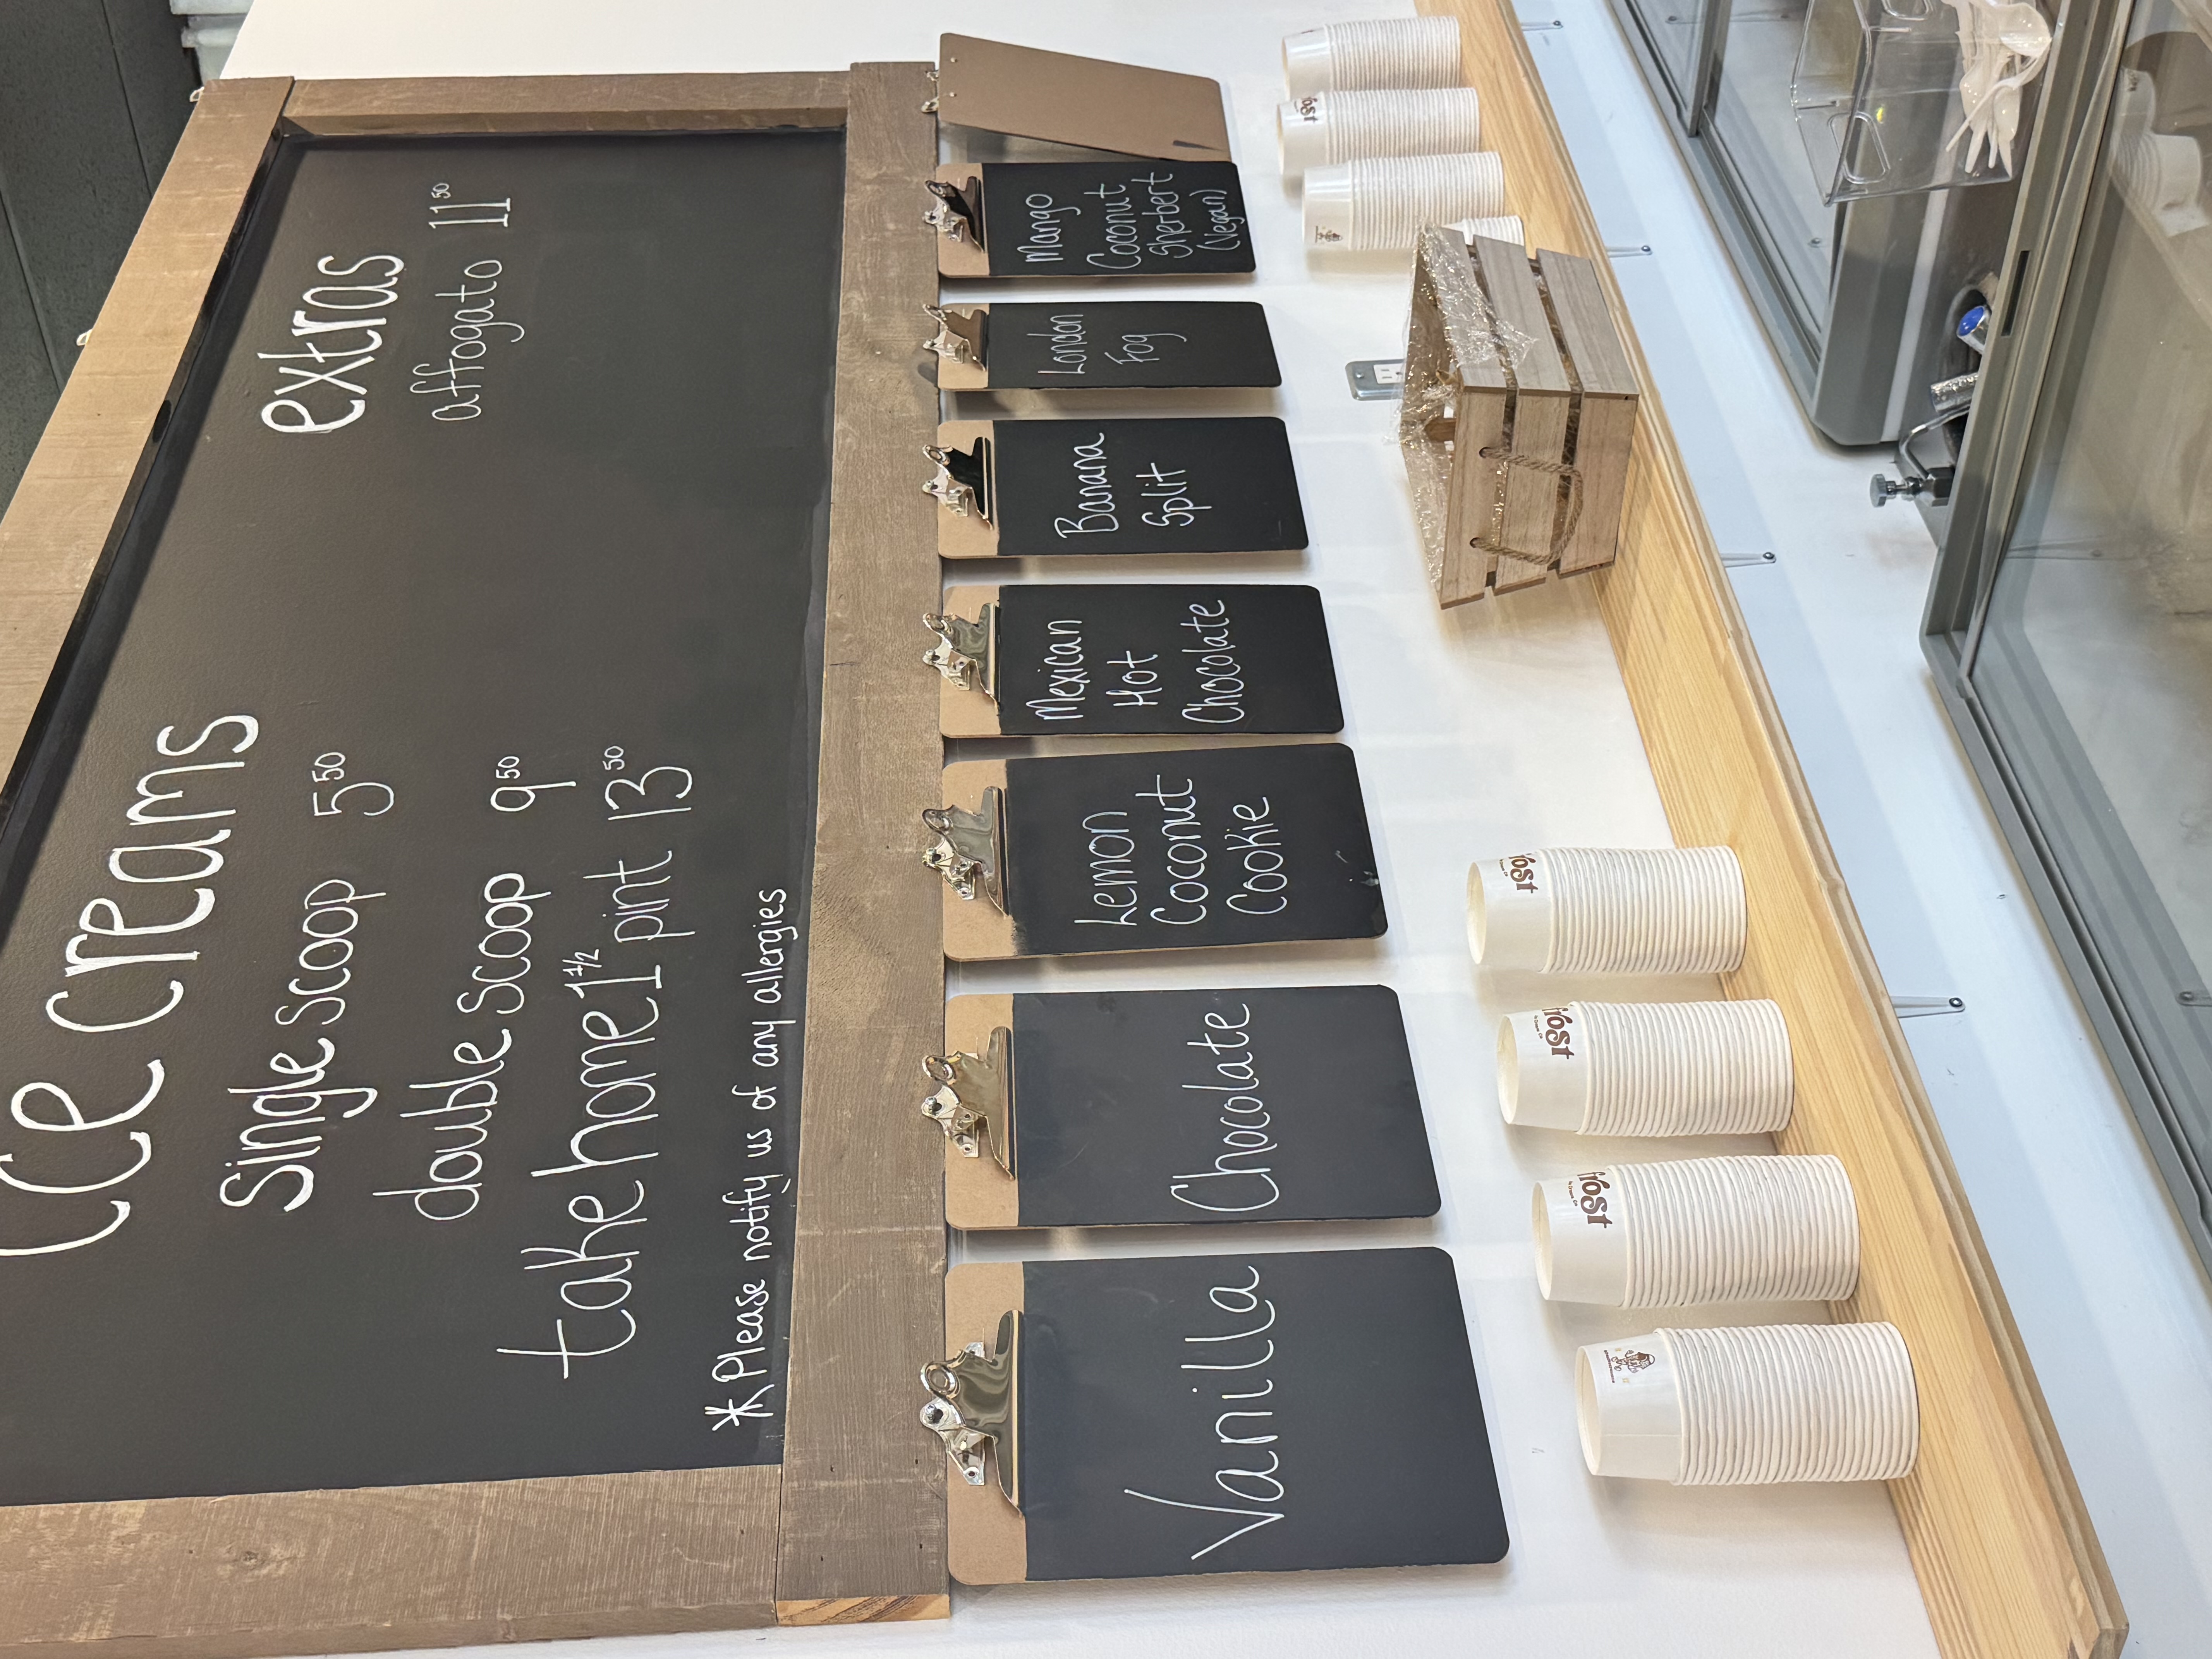 ice creams
Single scoop 5⁵⁰
double scoop 9⁵⁰
take home 1 1/2 pint 13⁵⁰
* Please notify us of any allergies
extras
affogato 11⁵⁰
Vanilla
Chocolate
Lemon
Coconut
Cookie
Mexican
Hot
Chocolate
Banana
Split
London
Fog
Mango
Coconut
Sherbert
(Vegan)
frost
frost
frost